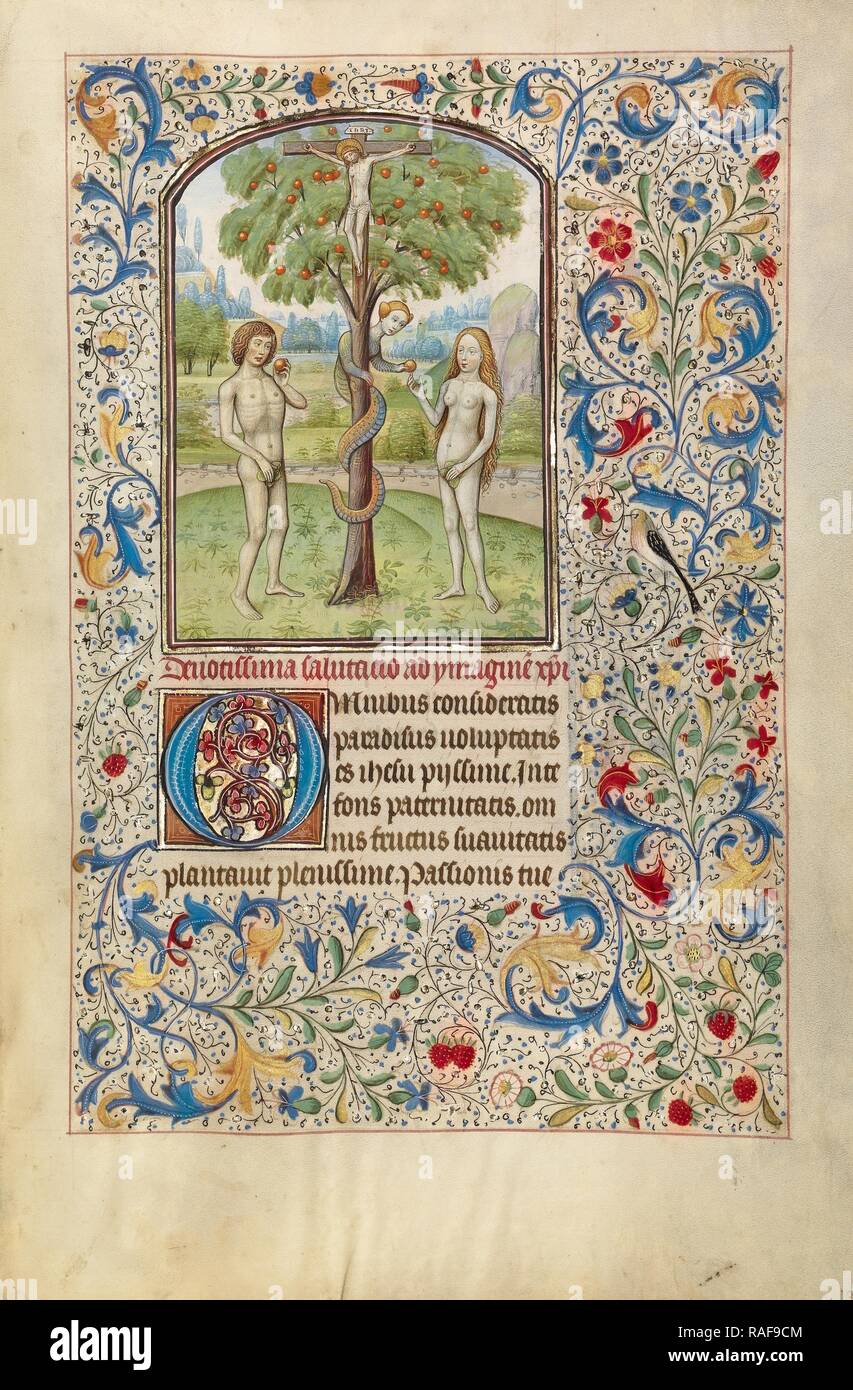 INRI
Deuotissima salutatio ad ymaginē xpi
OMnibus consideratis
paradisus uoluptatis
es ihesu pijssime. In te
fons paternitatis. om
nis fructus suauitatis
plantauit plenissime. Passionis tue
alamy
Image ID: RAF9CM
www.alamy.com